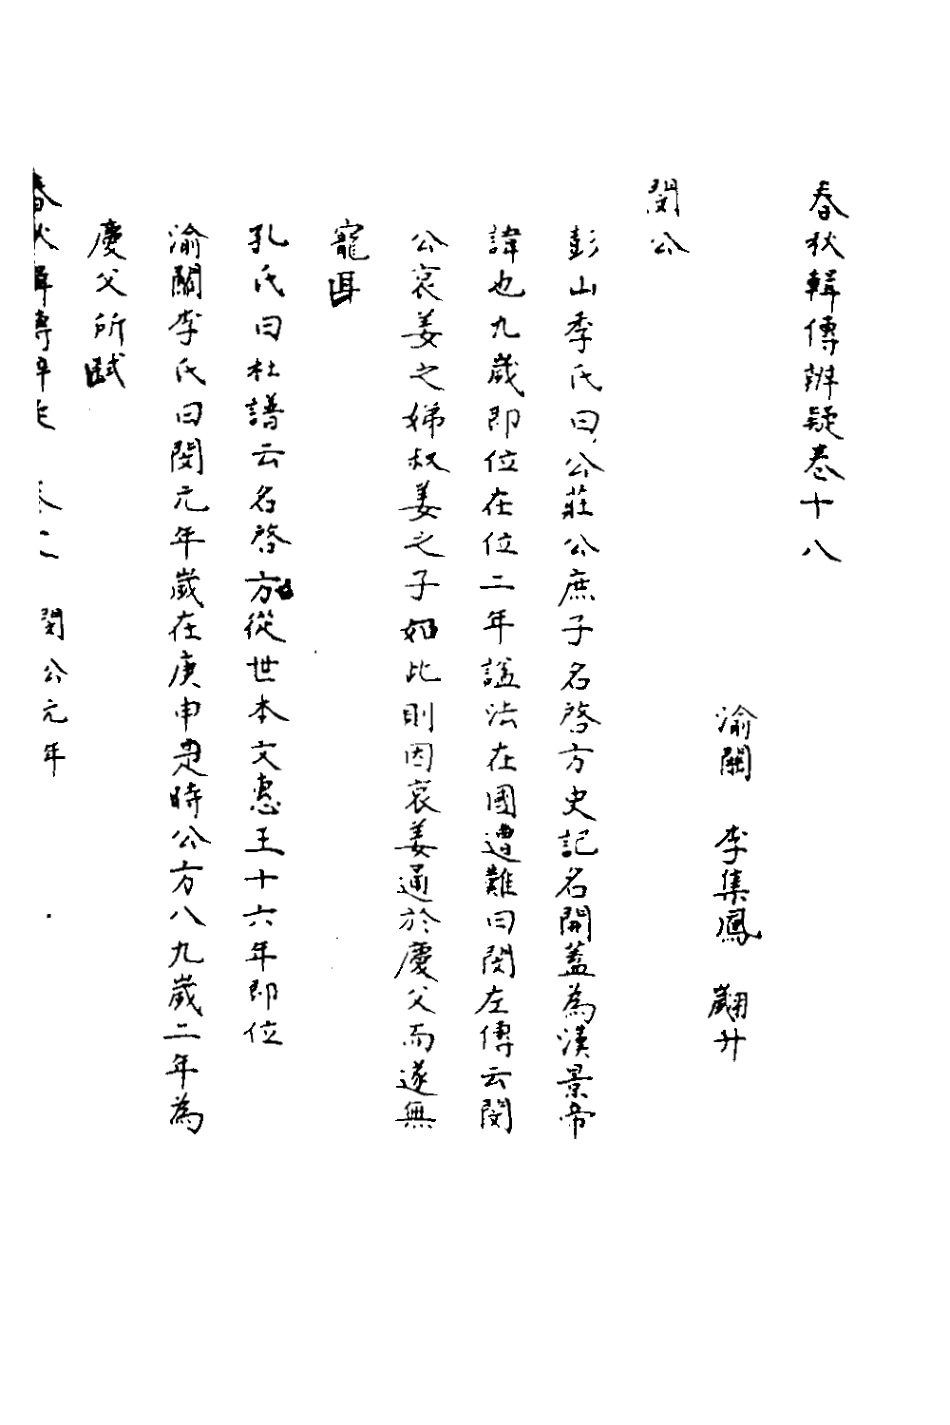 春秋輯傳辨疑卷十八
渝關　李集鳳　翽升
閔公
彭山季氏曰公莊公庶子名啓方史記名開蓋為漢景帝
諱也九歲即位在位二年諡法在國遭難曰閔左傳云閔
公哀姜之娣叔姜之子如此則因哀姜通於慶父而遂無
寵耳
孔氏曰杜譜云名啓方從世本文惠王十六年即位
渝關李氏曰閔元年歲在庚申是時公方八九歲二年為
慶父所弒
春秋輯傳辨疑　卷　閔公元年